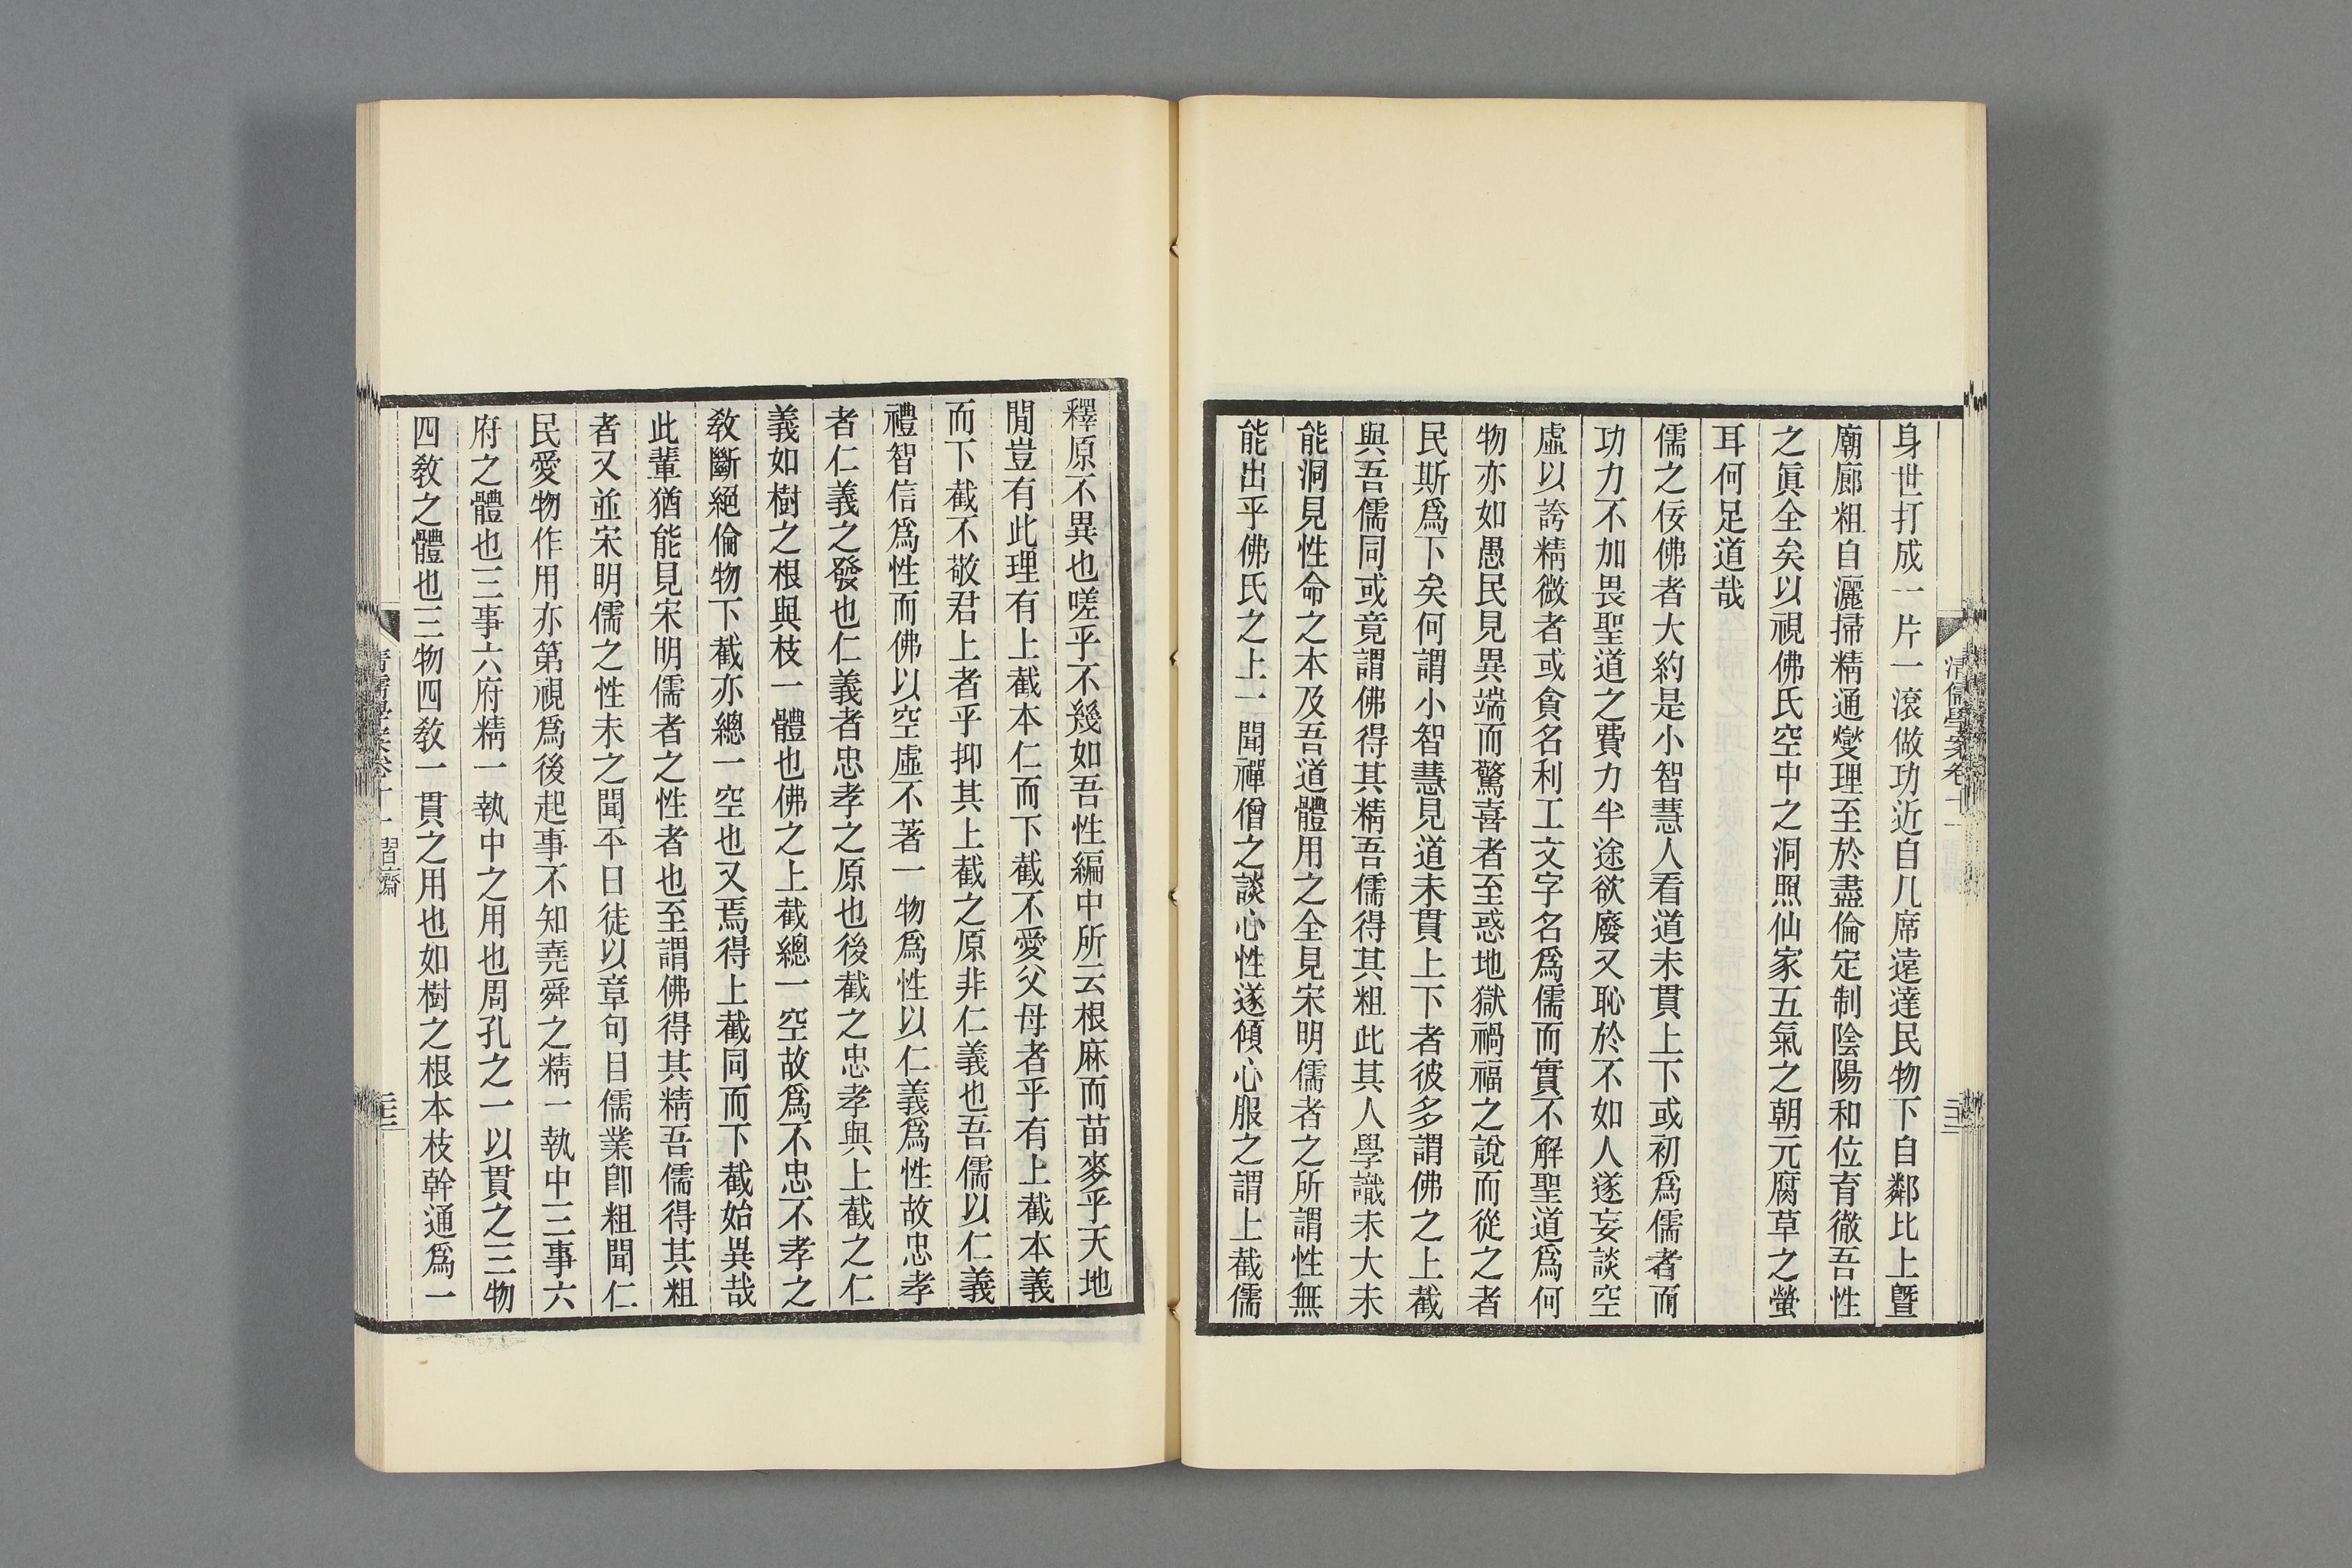 清儒學案卷十一
身世打成一片一滾做功近自几席遠達民物下自鄰比上曁
廟廊粗自灑掃精通燮理至於盡倫定制陰陽和位育徹吾性
之眞全矣以視佛氏空中之洞照仙家五氣之朝元腐草之螢
耳何足道哉
儒之佞佛者大約是小智慧人看道未貫上下或初爲儒者而
功力不加畏聖道之費力半途欲廢又恥於不如人遂妄談空
虛以誇精微者或貪名利工文字名爲儒而實不解聖道爲何
物亦如愚民見異端而驚喜者至惑地獄禍福之說而從之者
民斯爲下矣何謂小智慧見道未貫上下者彼多謂佛之上截
與吾儒同或竟謂佛得其精吾儒得其粗此其人學識未大未
能洞見性命之本及吾道體用之全見宋明儒者之所謂性無
能出乎佛氏之上一聞禪僧之談心性遂傾心服之謂上截儒
釋原不異也嗟乎不幾如吾性編中所云根麻而苗麥乎天地
閒豈有此理有上截本仁而下截不愛父母者乎有上截本義
而下截不敬君上者乎抑其上截之原非仁義也吾儒以仁義
禮智信爲性而佛以空虛不著一物爲性以仁義爲性故忠孝
者仁義之發也仁義者忠孝之原也後截之忠孝與上截之仁
義如樹之根與枝一體也佛之上截總一空故爲不忠不孝之
敎斷絕倫物下截亦總一空也又焉得上截同而下截始異哉
此輩猶能見宋明儒者之性者也至謂佛得其精吾儒得其粗
者又並宋明儒之性未之聞平日徒以章句目儒業卽粗聞仁
民愛物作用亦第視爲後起事不知堯舜之精一執中三事六
府之體也三事六府精一執中之用也周孔之一以貫之三物
四敎之體也三物四敎一貫之用也如樹之根本枝幹通爲一
清儒學案卷十一 習齋